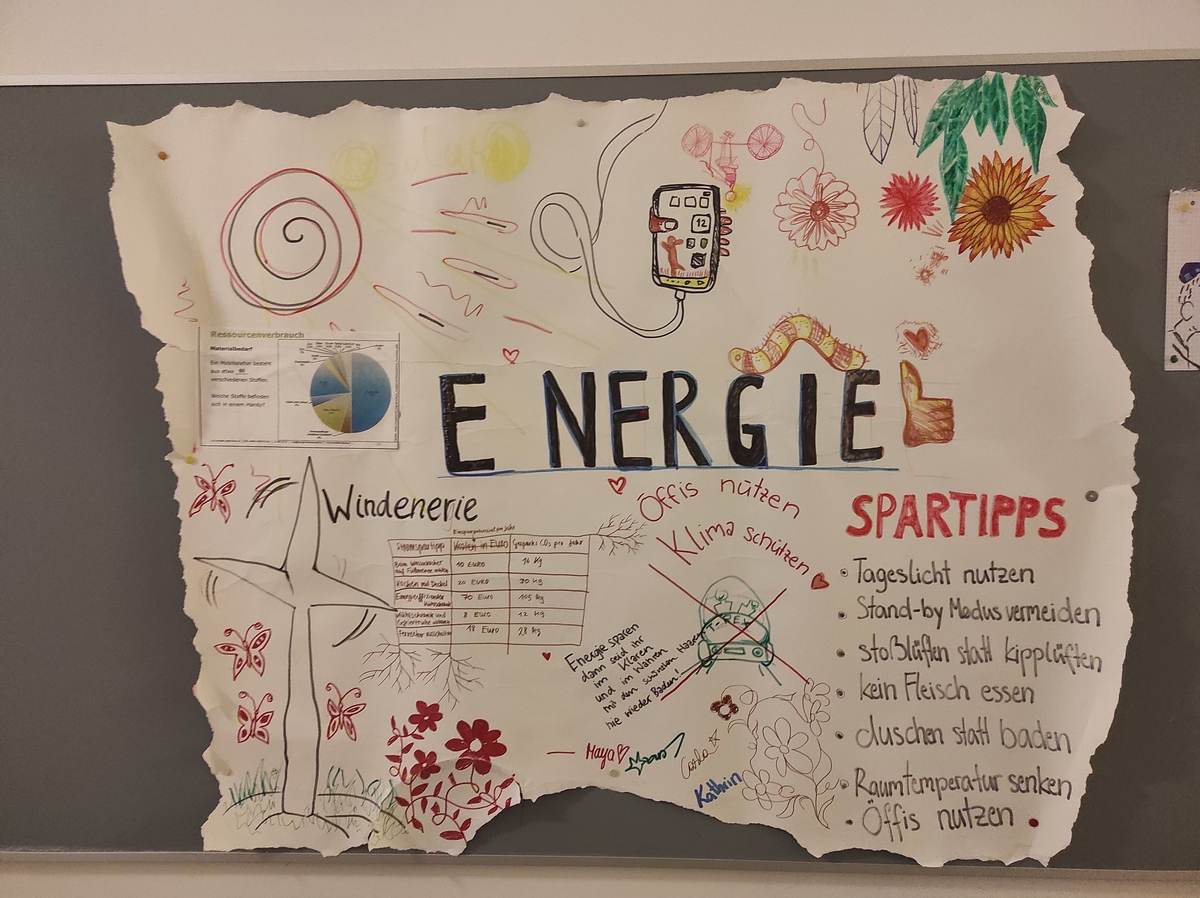 12
Ressourcenverbrauch
Materialbedarf
Ein Mobiltelefon besteht
aus etwa 60
verschiedenen Stoffen.
Welche Stoffe befinden
sich in einem Handy?
E NERGIE
Windenerie
Einsparpotenzial pro Jahr
Stromspartipps Kosten in Euro Gesparte CO₂ pro Jahr
10 Euro 14 Kg
Kochen mit Deckel 20 Euro 30 Kg
Energieeffiziente 70 Euro 105 Kg
8 Euro 12 Kg
18 Euro 28 Kg
Öffis nützen
Klima schützen
T-REX
Energie sparen
dann seid ihr
im Klaren
und im Wahren
mit den schönsten Haaren
nie wieder Baden!
Maya
Kathrin
SPARTIPPS
• Tageslicht nutzen
• Stand-by Modus vermeiden
• stoßlüften statt kipplüften
• kein Fleisch essen
• duschen statt baden
• Raumtemperatur senken
• Öffis nutzen